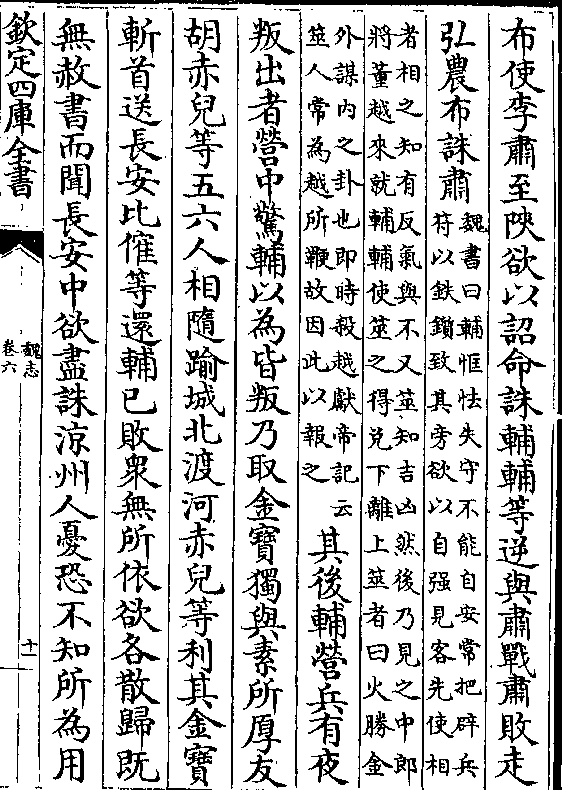 布使李肅至陜欲以詔命誅輔輔等逆與肅戰肅敗走
弘農布誅肅
魏書曰輔恇怯失守不能自安常把辟兵
符以鉄鎖致其旁欲以自强見客先使相
者相之知有反氣與不又筮知吉凶然後乃見之中郎
將董越來就輔輔使筮之得兌下離上筮者曰火勝金
外謀内之卦也即時殺越獻帝記云
筮人常為越所鞭故因此以報之
其後輔營兵有夜
叛出者營中驚輔以為皆叛乃取金寶獨與素所厚友
胡赤兒等五六人相隨踰城北渡河赤兒等利其金寶
斬首送長安比傕等還輔已敗衆無所依欲各散歸既
無赦書而聞長安中欲盡誅涼州人憂恐不知所為用
欽定四庫全書
魏志
卷六
十一